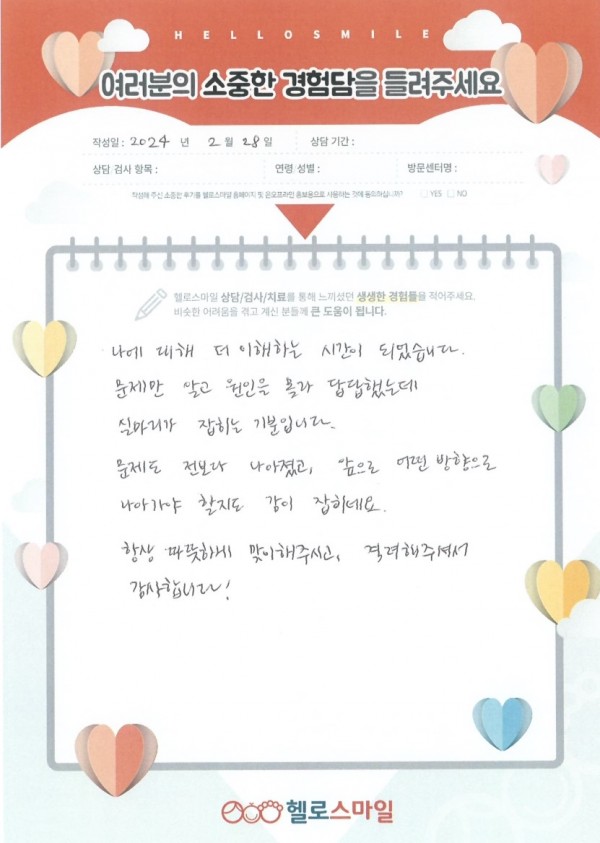 HELLOSMILE
여러분의 소중한 경험담을 들려주세요
작성일 : 2024 년 2 월 28 일 상담 기간 :
상담·검사 항목 : 연령/성별 : 방문센터명 :
작성해 주신 소중한 후기를 헬로스마일 홈페이지 및 온오프라인 홍보용으로 사용하는 것에 동의하십니까? YES NO
헬로스마일 상담/검사/치료를 통해 느끼셨던 생생한 경험들을 적어주세요.
비슷한 어려움을 겪고 계신 분들께 큰 도움이 됩니다.
나에 대해 더 이해하는 시간이 되었습니다.
문제만 알고 원인을 몰라 답답했는데
실마리가 잡히는 기분입니다.
문제도 전보다 나아졌고, 앞으로 어떤 방향으로
나아가야 할지도 감이 잡히네요.
항상 따뜻하게 맞이해주시고, 격려해주셔서
감사합니다!
헬로스마일